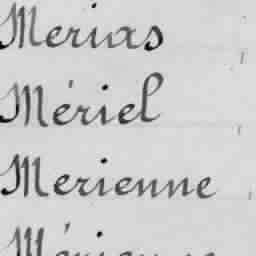 Merias
Mériel
Merienne